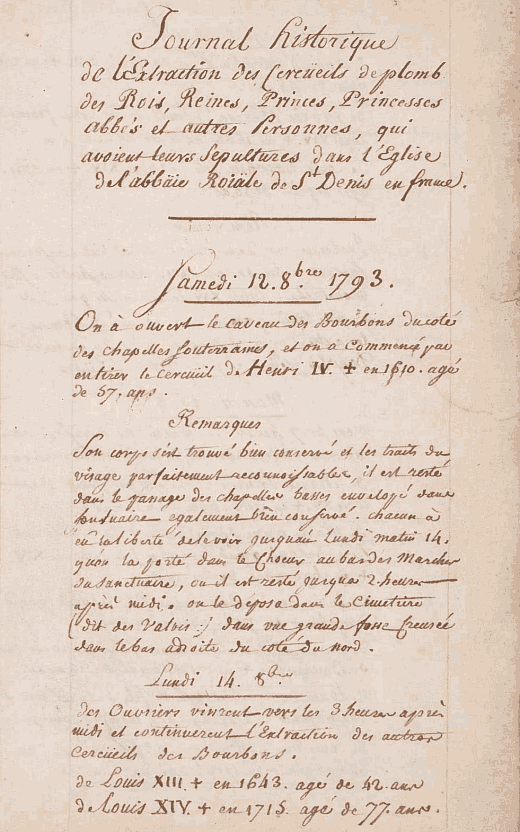 Journal historique
de l'Extraction des Cercüeils de plomb
des Rois, Reines, Princes, Princesses
abbés et autres Personnes, qui
avoient leurs Sepultures dans l'Eglise
de l'abbaïe Roïale de St Denis en france.
Samedi 12. 8.bre 1793.
On à ouvert le caveau des Bourbons du coté
des chapelles souterraines, et on à commencé par
en tirer le cercüeil de Henri IV. + en 1610. agé
de 57. ans.
Remarques
Son corps s'est trouvé bien conservé et les traits du
visage parfaitement reconnoissables, il est resté
dans le passage des chapelles basses envelopé dans
son suaire egalement bien conservé. chacun à
eû la liberté de le voir jusquau Lundi matin 14.
quon la porté dans le Choeur au bas des Marches
du Sanctuaire, ou il est resté jusqua 2 heures
après midi. on le déposa dans le Cimetiere
(dit des Valois :) dans une grande fosse Creusée
dans le bas adroite du coté du nord.
Lundi 14. 8bre
des Ouvriers vinrent vers les 3 heures après
midi et continuerent l'Extraction des autres
Cercüeils des Bourbons.
de Louis XIII + en 1643. agé de 42. ans
de Louis XIV. + en 1715. agé de 77. ans.